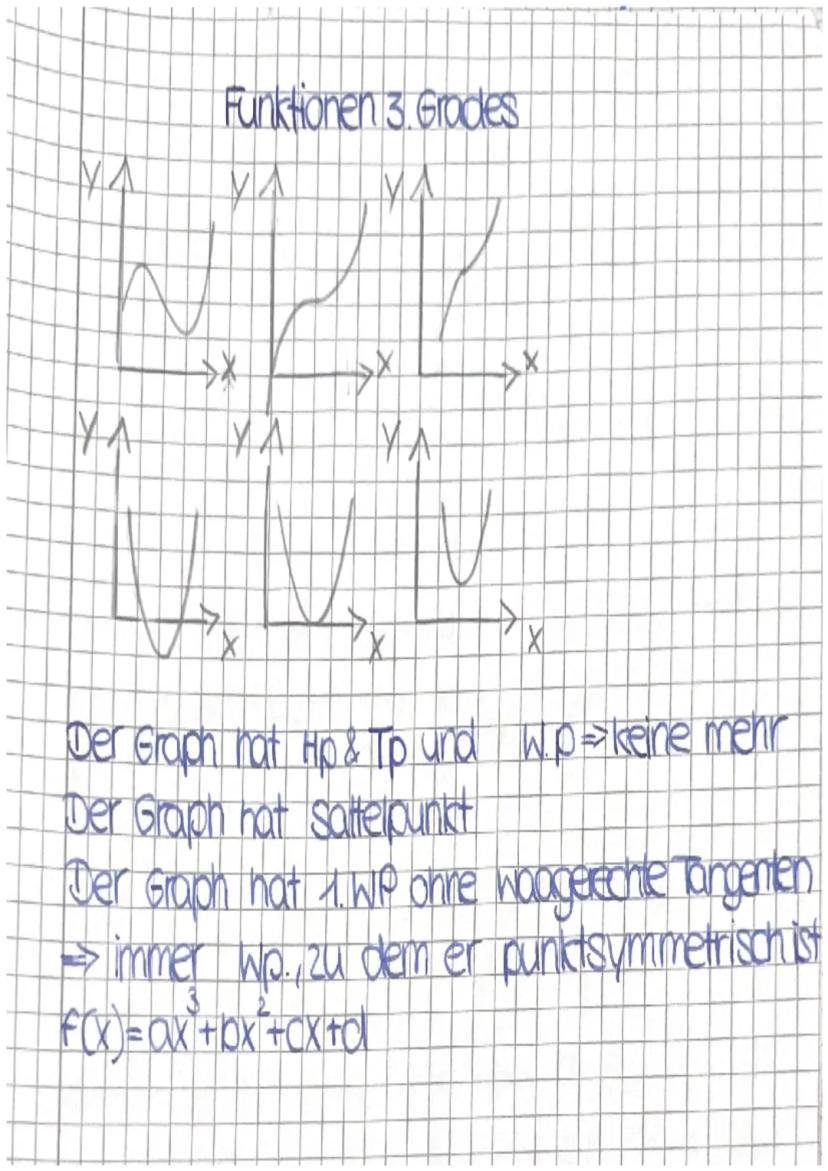 Funktionen 3. Grades
Y Y Y
X X X
Y Y Y
X X X
Der Graph hat Hp & Tp und W.p => keine mehr
Der Graph hat Sattelpunkt
Der Graph hat 1. WP ohne waagerechte Tangenten
=> immer Wp., zu dem er punktsymmetrisch ist
f(x) = ax³+bx²+cx+d